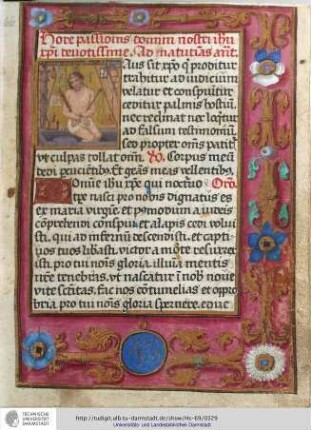 Hore passionis domini nostri ihu
xpi devotissime. Ad matutinas ant.
Laus sit xpo q proditur
trahitur ad iudicium
velatur et conspuitur
ceditur palmis hostiu.
nec reclmat nec loqtur
ad falsum testimoniu.
sed propter oms patitr
vt culpas tollat om. Corpus meu
dedi peucietibus. Et geas meas vellentibus.
Domine ihu xpe qui nocturno Oro
tpe nasci pro nobis dignatus es
ex maria virgine et pymodum a iudeis
comprehendi conspui et alapis cedi volui
sti. qui ad infernu descendisti. et capti
uos tuos libasti. victor a morte resurrex
isti. pro tui nois gloria. illuia mentis
nre tenebras. vt nascatur i nob noue
vite scitas. fac nos cotumelias et oppro
bria pro tui nois gloria spernere. et ne
TECHNISCHE
UNIVERSITÄT
DARMSTADT
http://tudigit.ulb.tu-darmstadt.de/show/Hs-69/0029
Universitäts- und Landesbibliothek Darmstadt